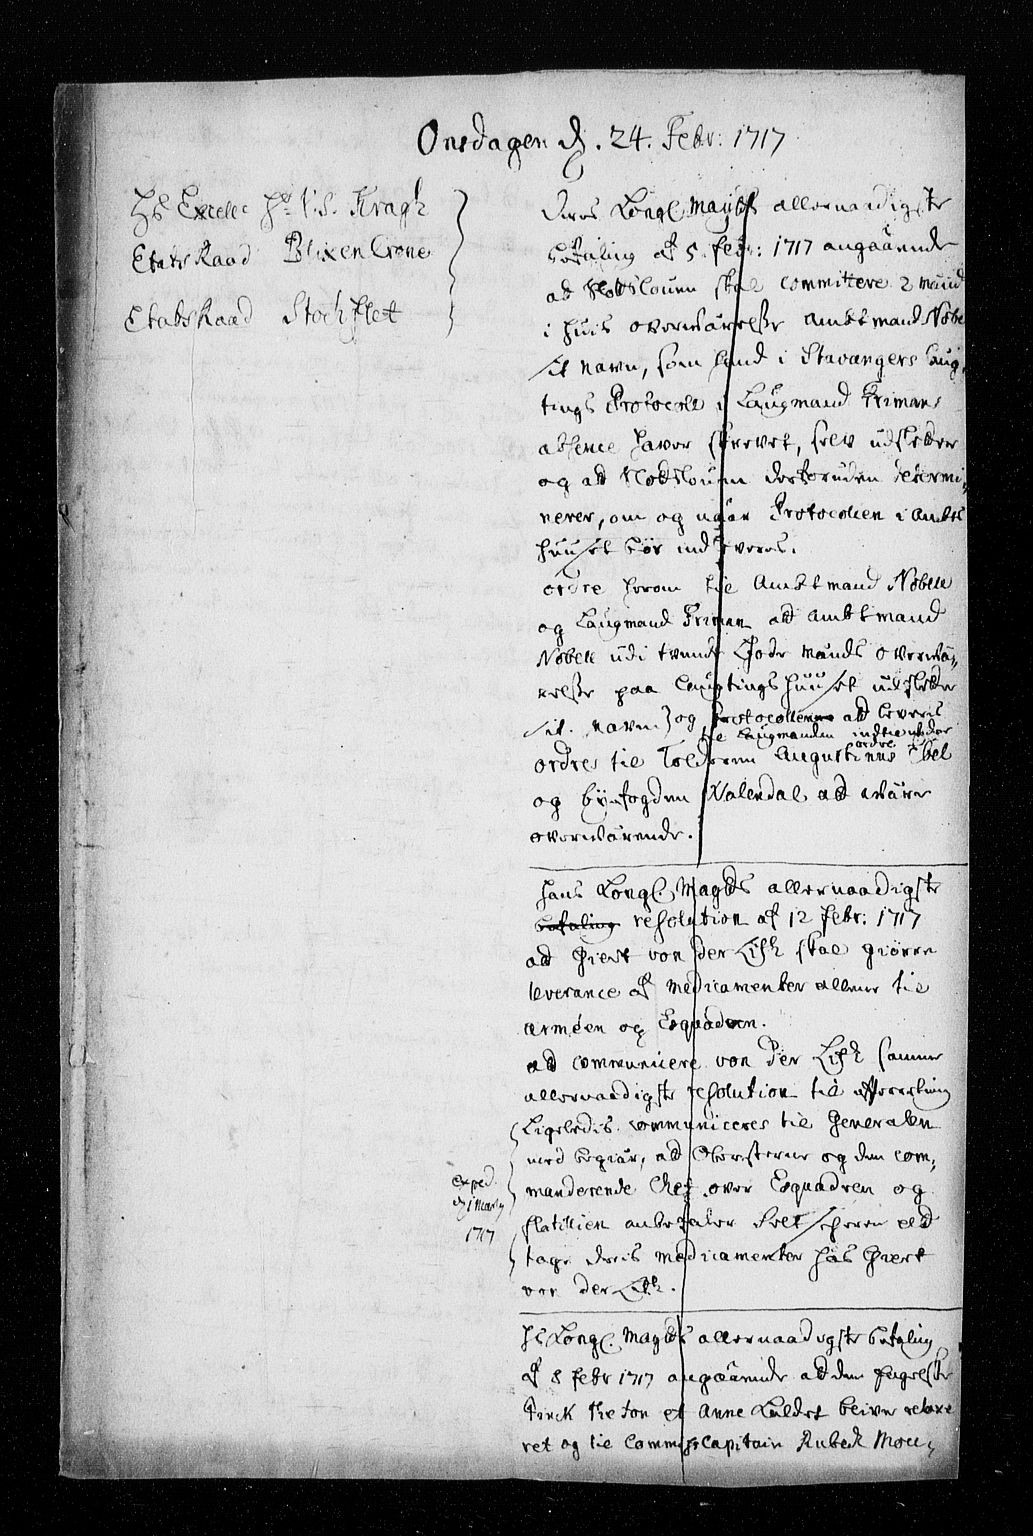 Onsdagen d. 24. Febr: 1717
Hs Excelle Hr V: S. Kragh
Etats Raad Blixencrone
Etats Raad Stochflet
Deres Kongl Mayts allernaadigste
befaling af 5. febr: 1717 angaaende
at Slotsloven skal committere 2 mænd
i huis overværelse Ambtmand Nobel
sit navn, som hand i Stavangers laug,
tings Protocoll i Laugmand Primans
absence haver skrevet, selv udsletter
og at Slotsloven desforuden determi,
nerer, om og naar Protocollen i Ambts
huuset bør indleveres.
ordre herom til Ambtmand Nobel
og Laugmand Priman at Ambtmand
Nobell udi tvende Gode mænds overvæ,
relse paa laugtings huuset udsletter
sit navn, og Protocollerne at leveris
til laugmanden indtil videre ordre
ordres til Tolderen Augustinus Ebel
og byefogden Valendal at være
overværende.
Hans Kongl. Mayts allernaadigste
befaling resolution af 12 febr: 1717
at Giert von der Lish skal giøre
leverance af medicamenter allene til
armeen og Esquadren.
at communicere von der Lish samme
allernaadigste resolution til efterretning
Ligeledis communiceres til Generalen
med begiær, at Obersterne og den com,
manderende Chef over Esquadren og
flatillien anbefaler feltskererne at
tage deris medicamenter hos Giert
von der Lish.
exped
d 1 Marty
1717
Hs Kongl. Mayts allernaadigste befaling
af 8 febr 1717 angaaende at den Engelske
Pinck Keton et Anne Luldet bliver relaxe
ret og til Commiss Capitain Rubech